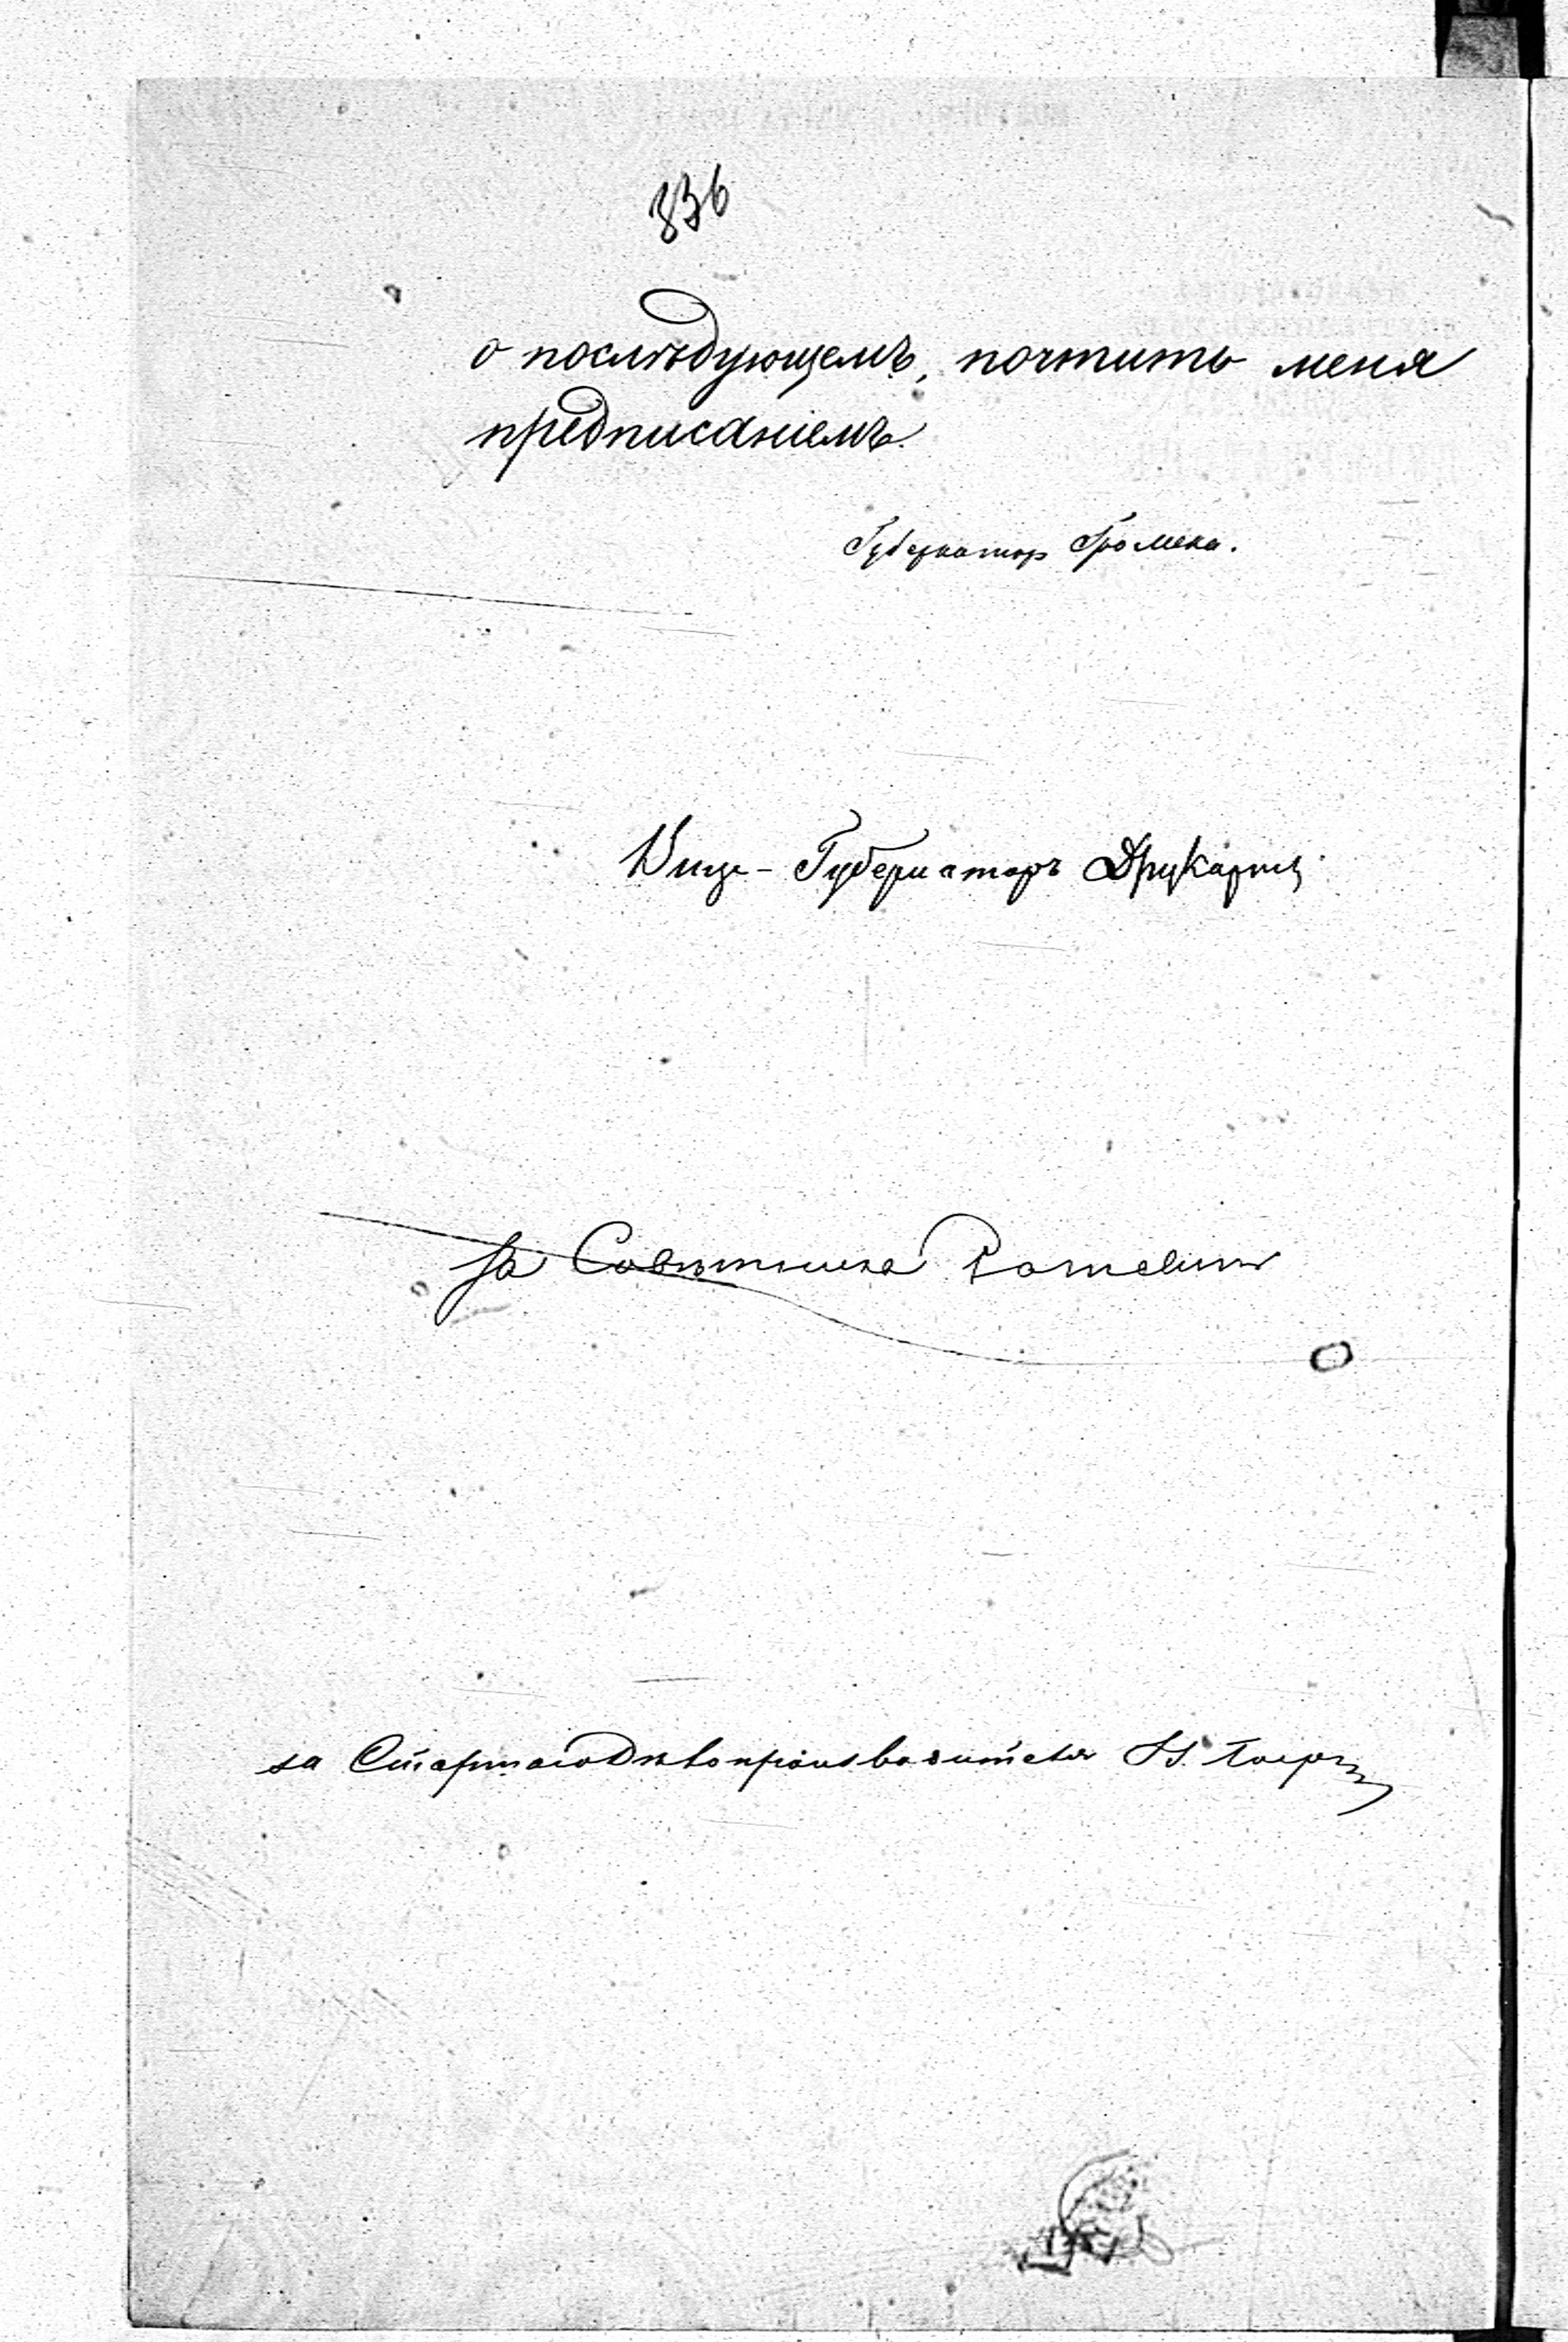 336
о послѣдующемъ, почтить меня
предписаніемъ.
Губернатор Громека.
Вице-Губернаторъ
За Совѣтника
за Старшаго Дѣлопроизводителя Н.